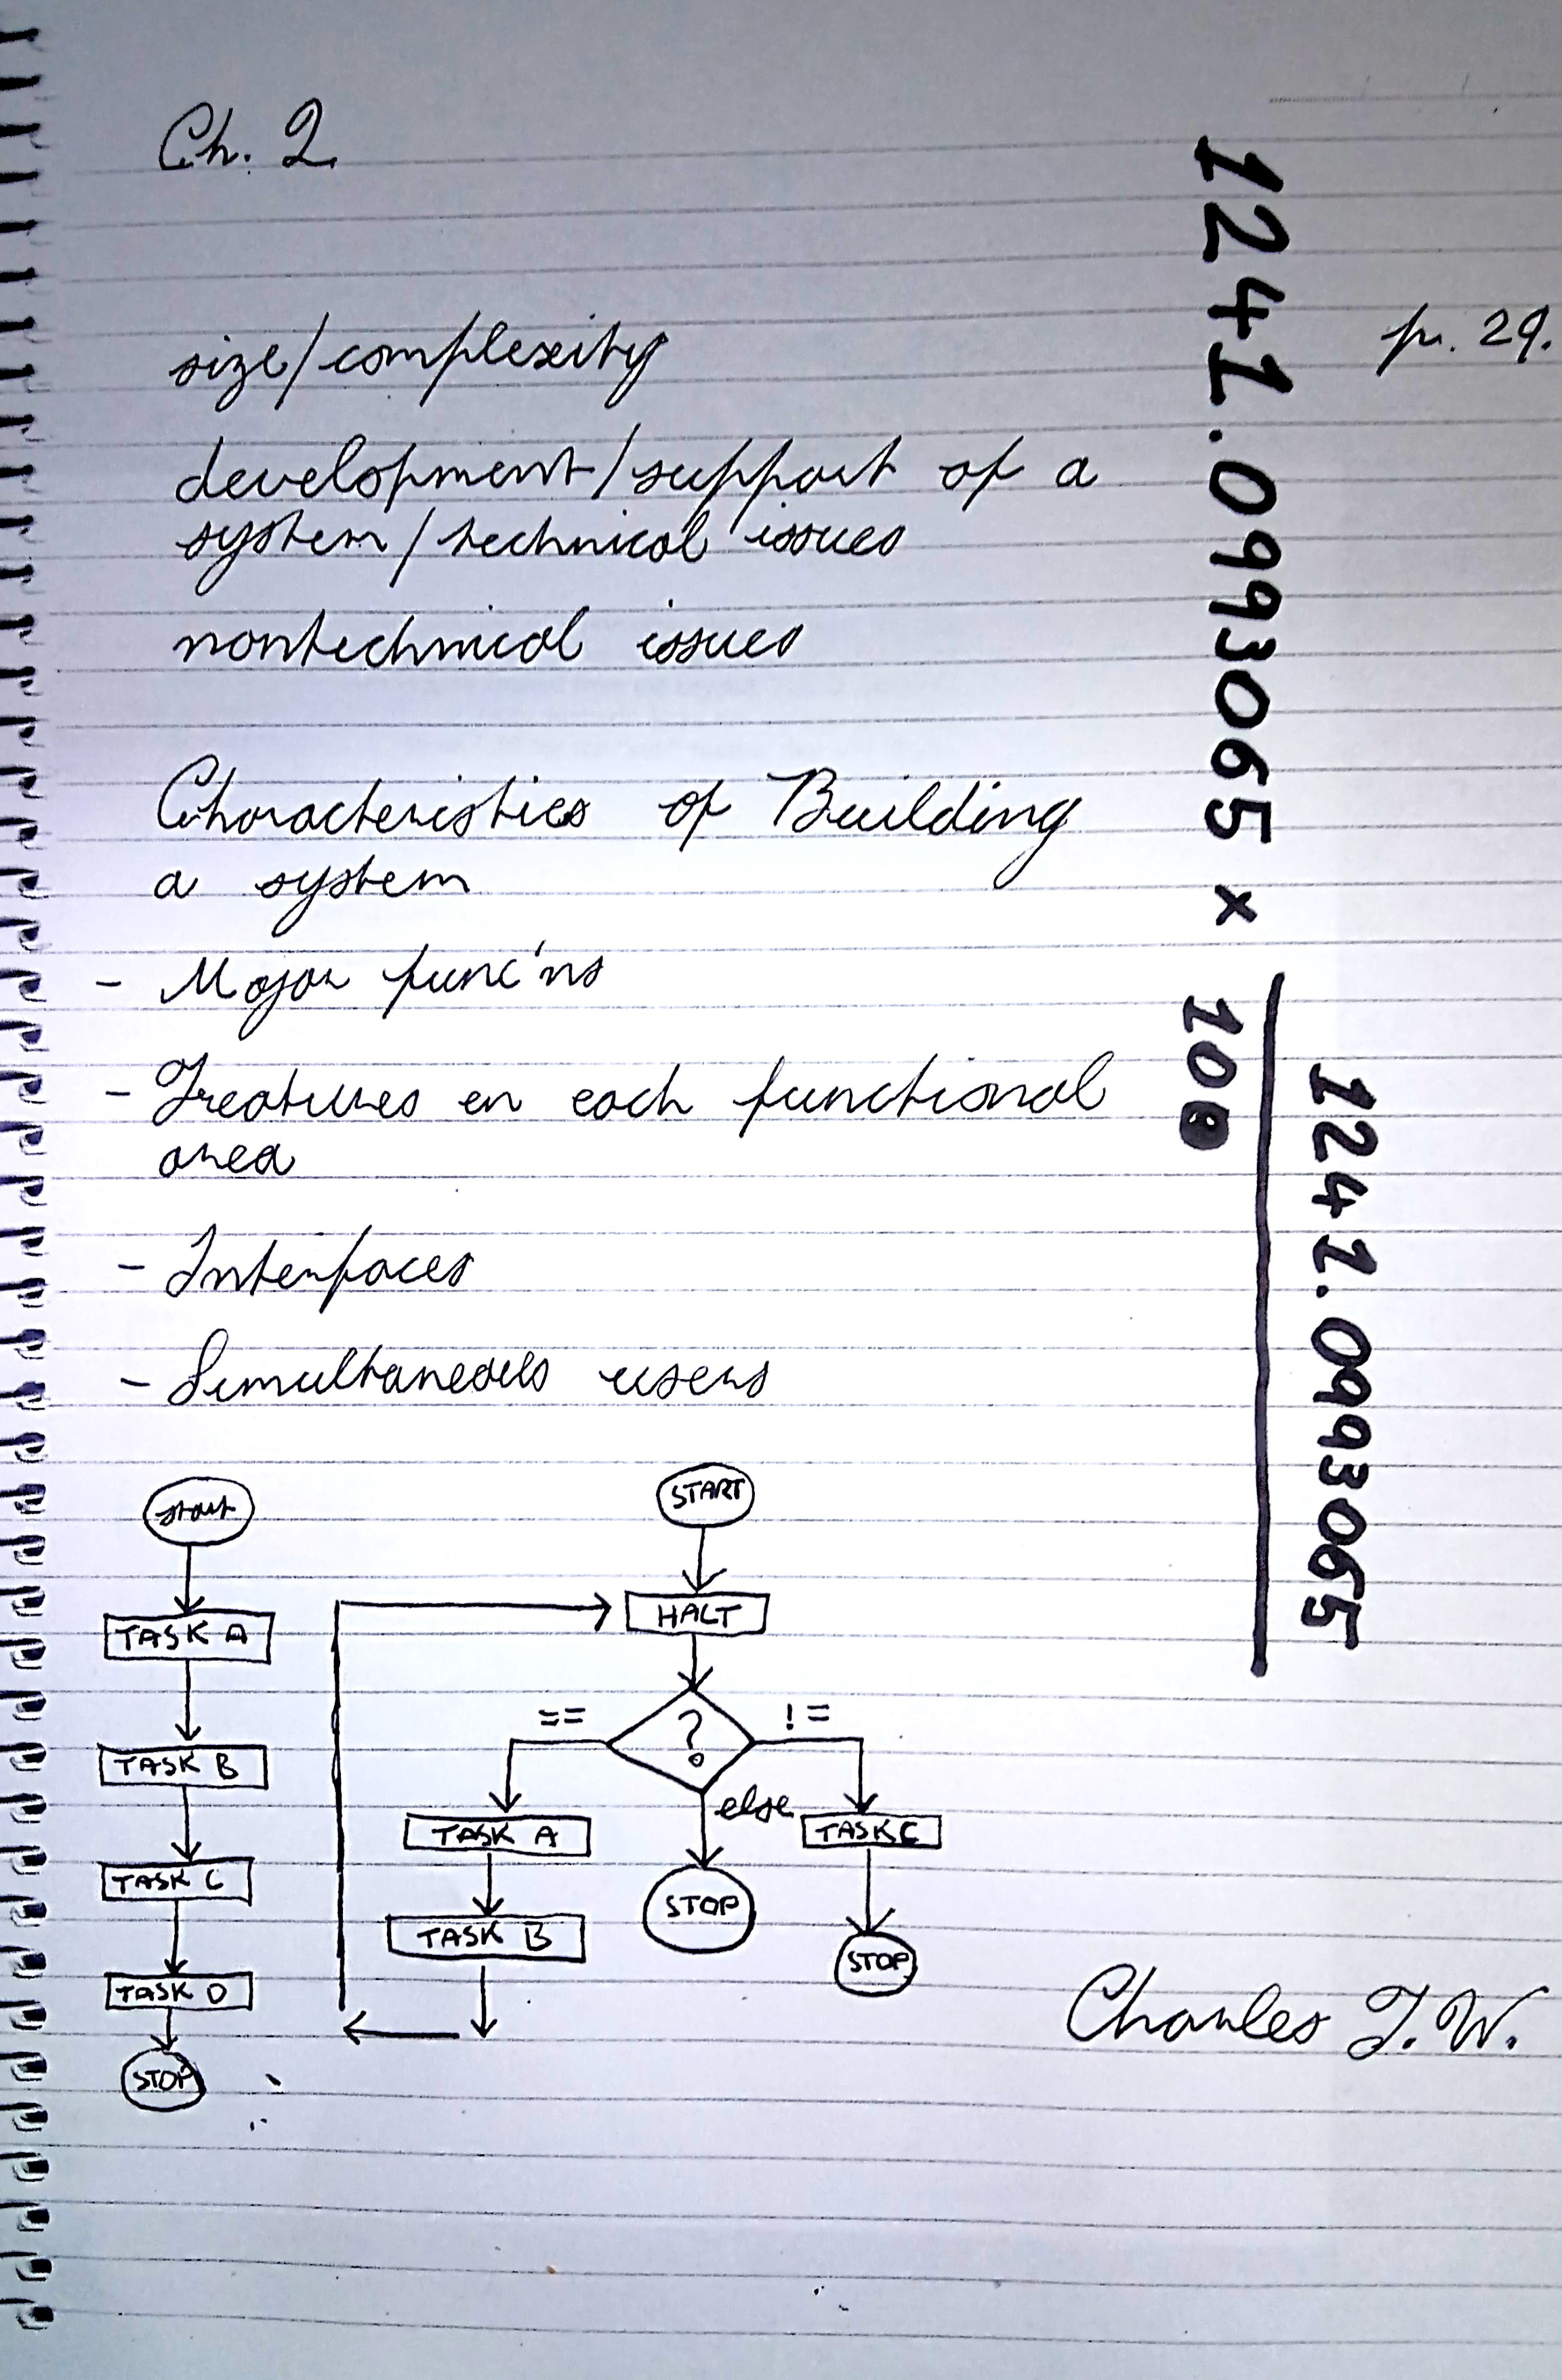 Ch. 2
p. 29.
size/complexity
development/support of a
system/technical issues
nontechnical issues
Characteristics of Building
a system
- Major func'ns
- Features en each functional
area
- Interfaces
- Simultaneous users
start
TASK A
TASK B
TASK C
TASK D
STOP
START
HALT
?
==
!=
else
TASK A
TASK B
STOP
TASK C
STOP
1241.0993065 x
10
1241.0993065
Charles T.W.